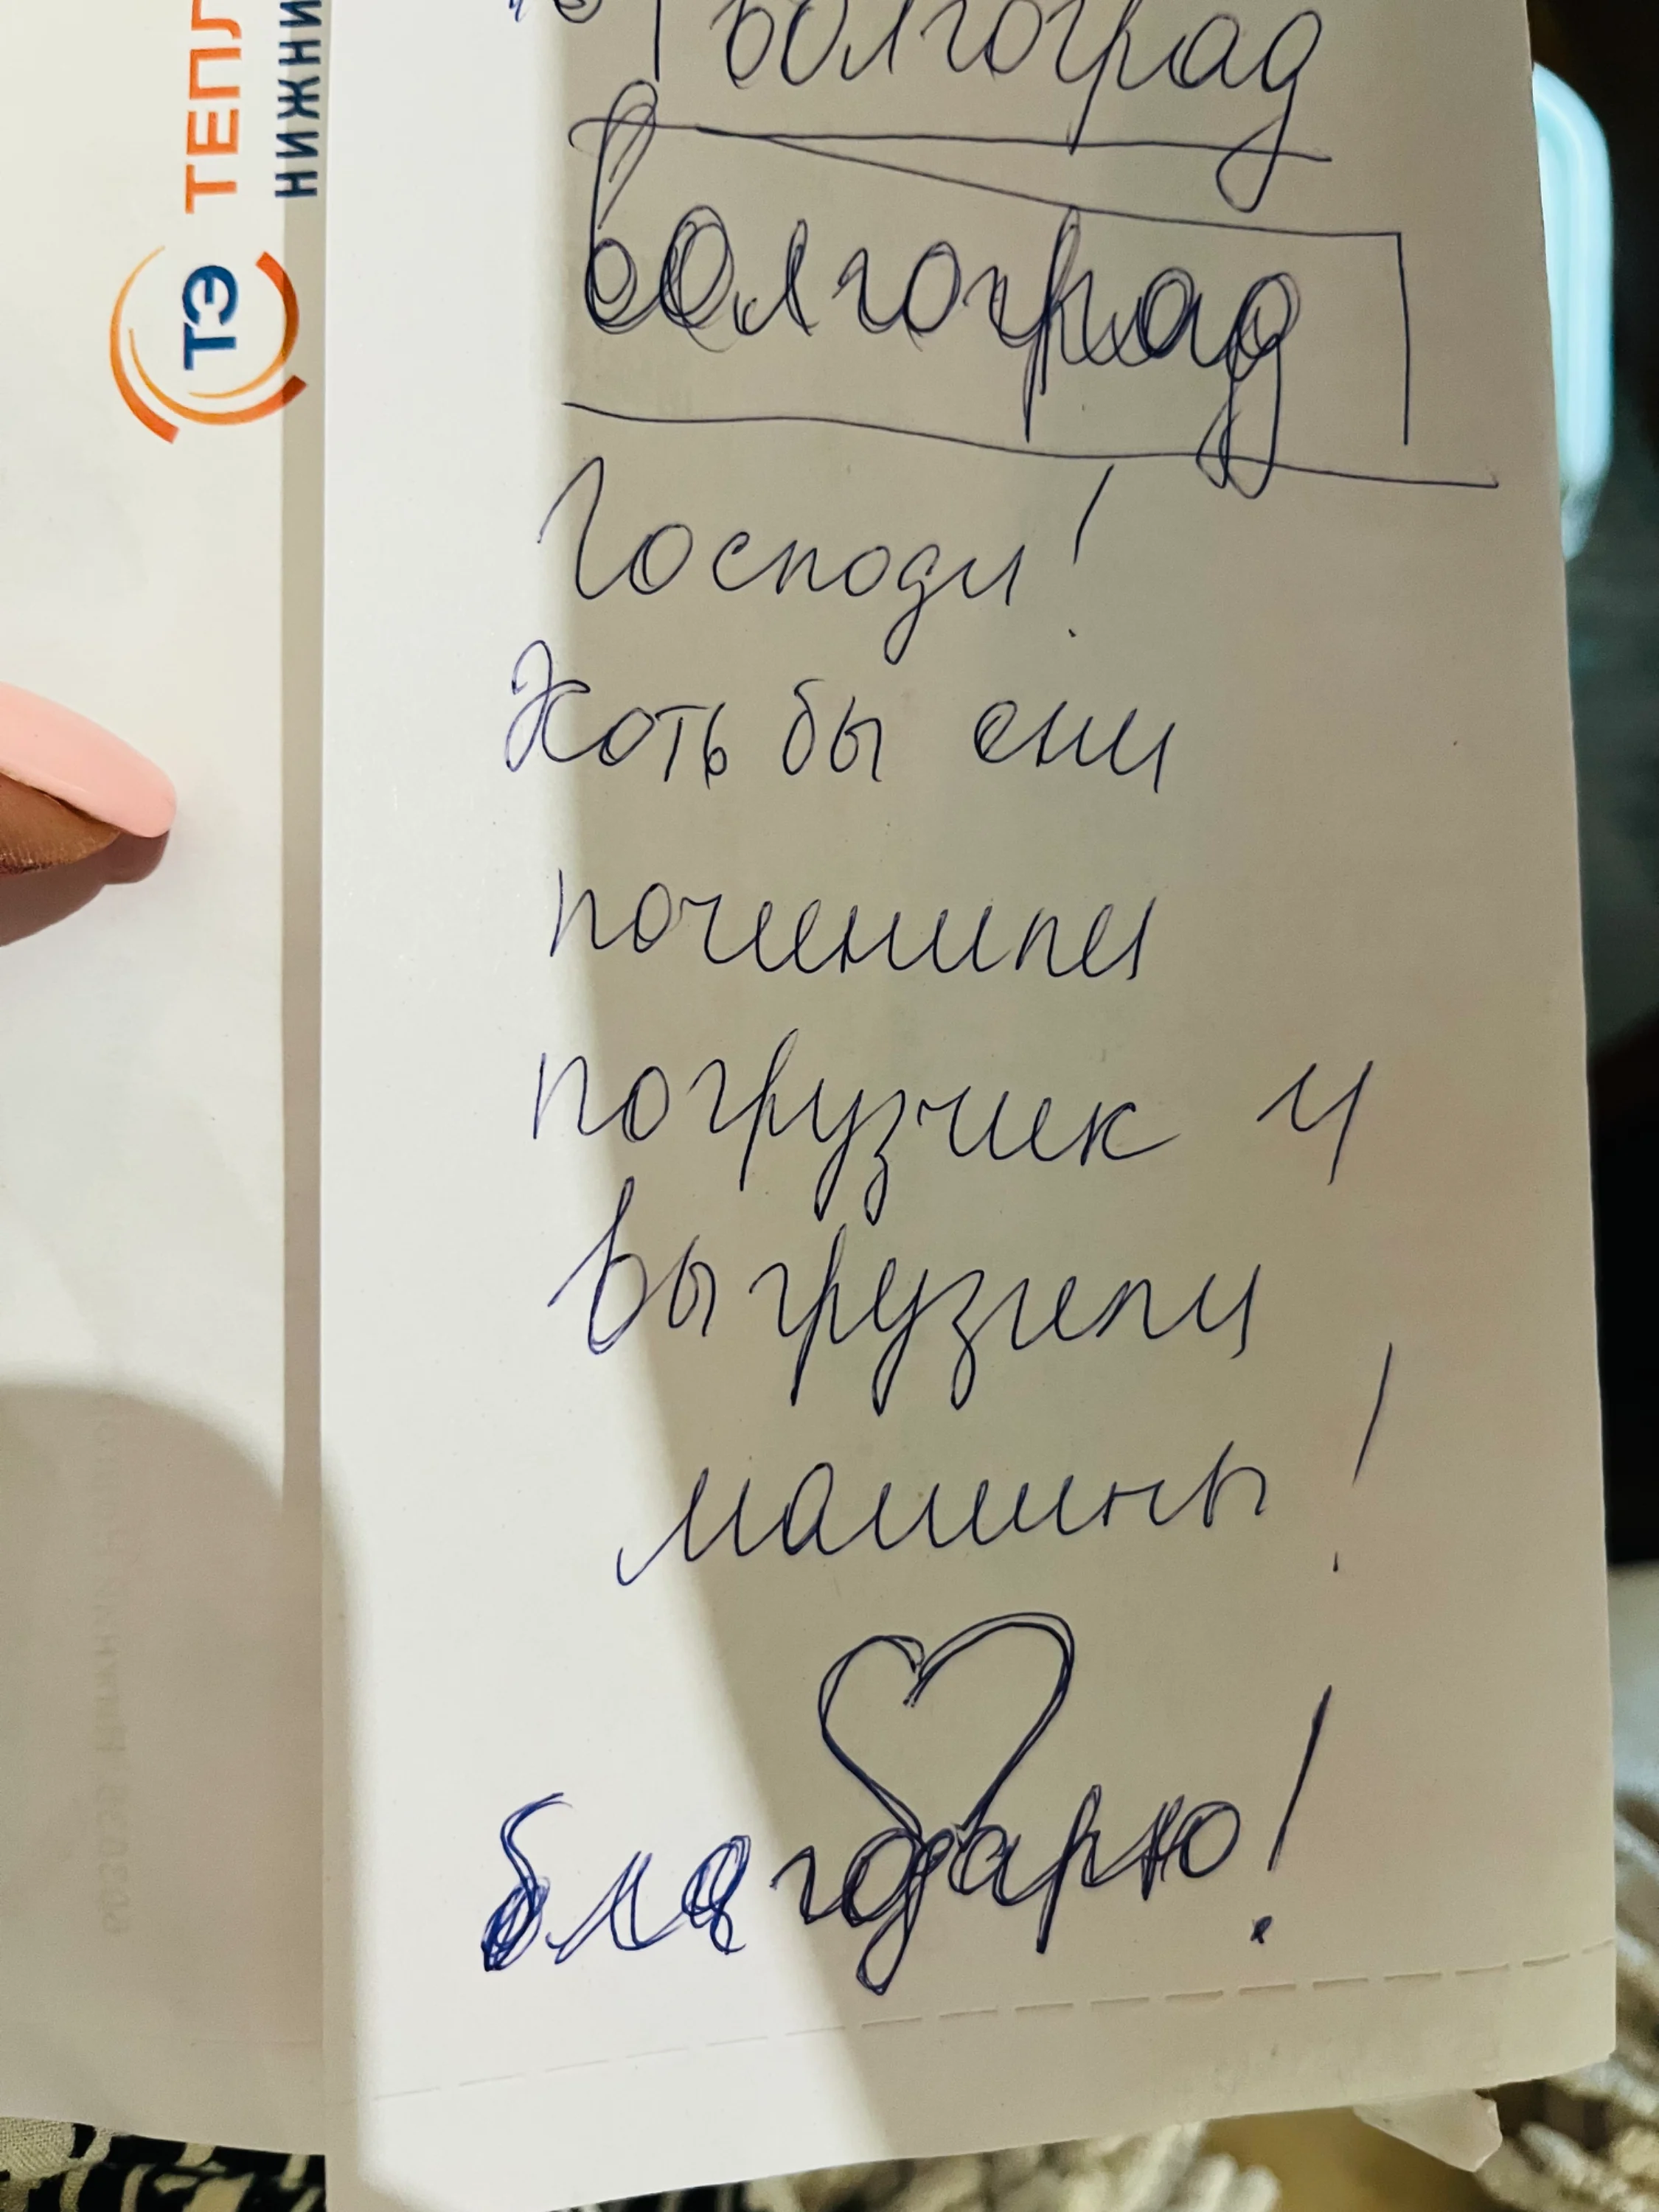 ТЕПЛ
НИЖНИ
ТЭ
Волгоград
Волгоград
Господи!
Хоть бы они
починили
погрузчик и
выгрузили
машины!
благодарю!